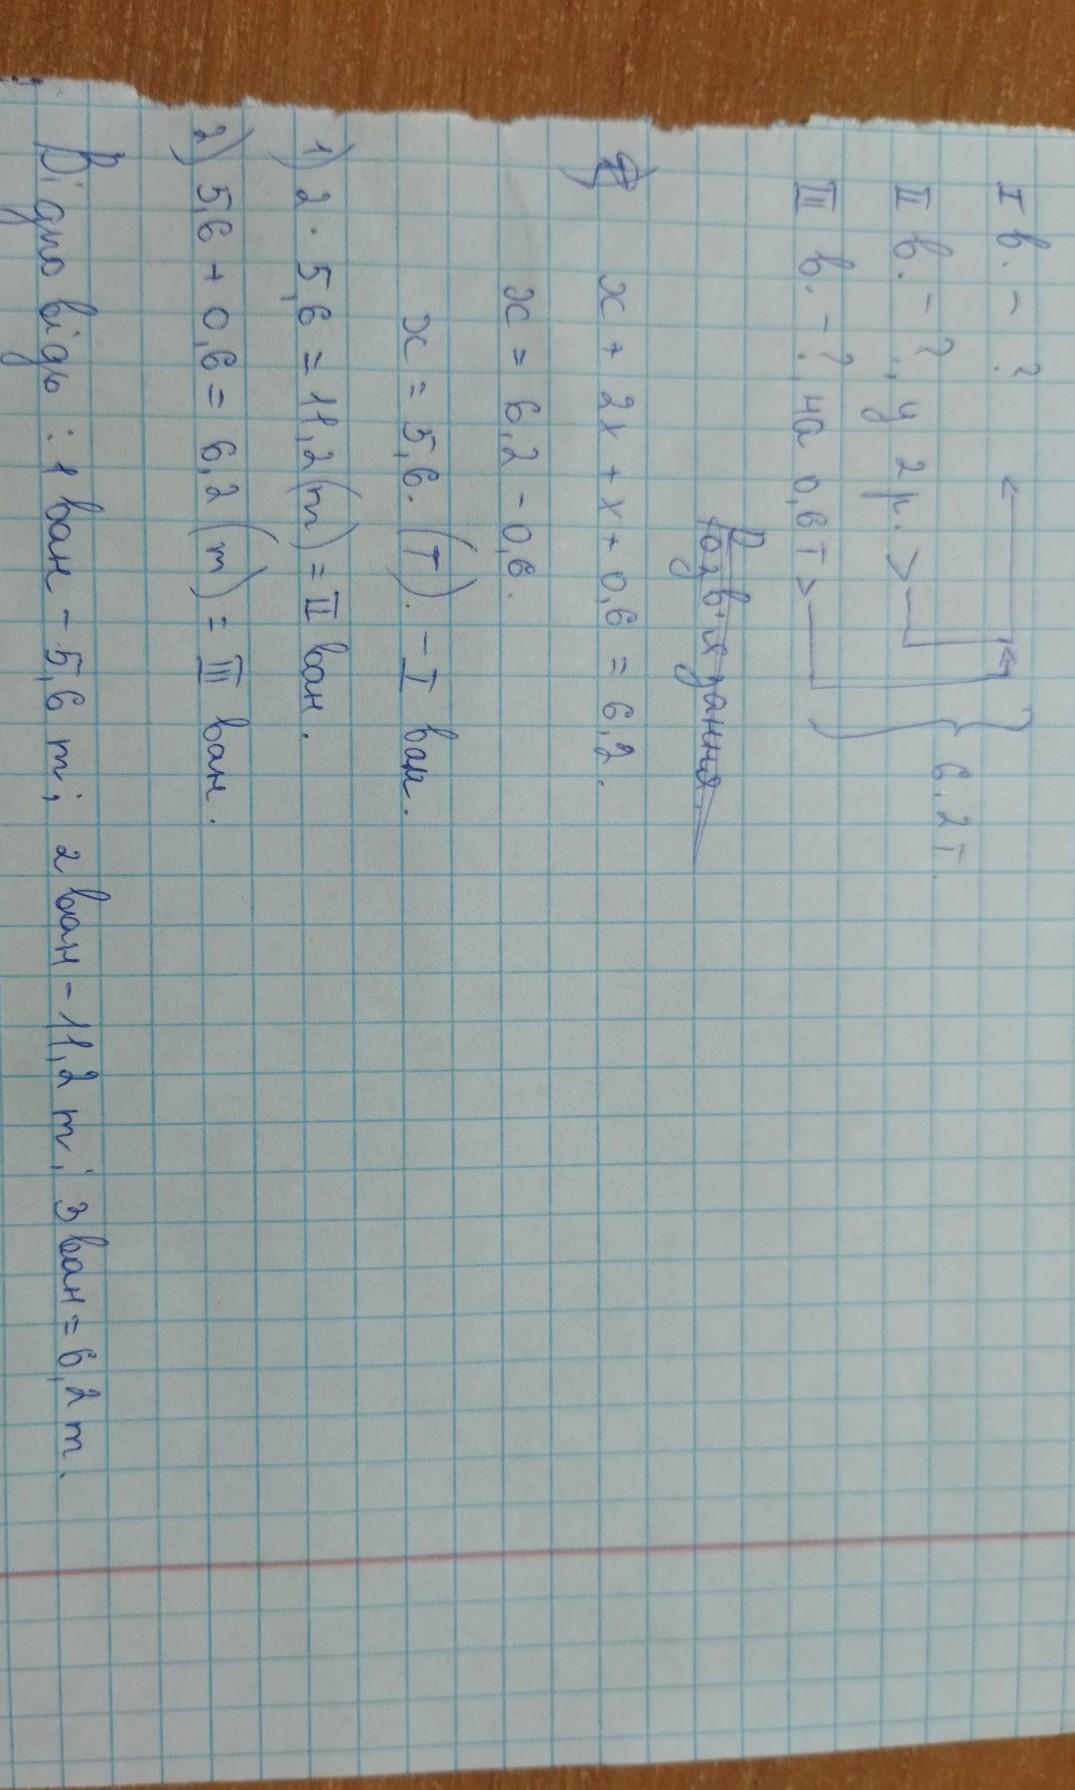 I в. - ?
II в. - ?, у 2 р. >
III в. - ?, на 0,6 т >
6,2 т
Розв'язання
x + 2x + x + 0,6 = 6,2.
x = 6,2 - 0,6.
x = 5,6. (т). - I ван.
1) 2 · 5,6 = 11,2 (т) = II ван.
2) 5,6 + 0,6 = 6,2 (т) = III ван.
Відповідь : 1 ван - 5,6 т; 2 ван - 11,2 т; 3 ван = 6,2 т.